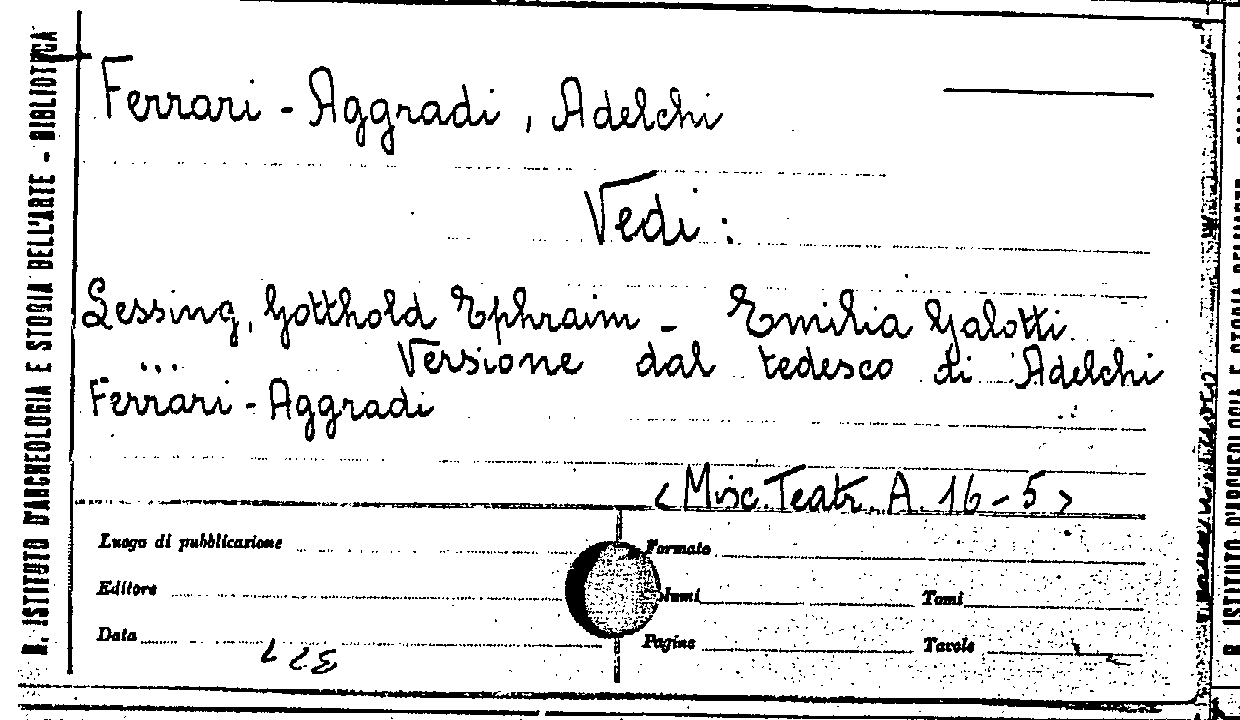 R. ISTITUTO D'ARCHEOLOGIA E STORIA DELL'ARTE - BIBLIOTECA
Ferrari - Aggradi, Adelchi
Vedi:
Lessing, Gotthold Ephraim - Emilia Galotti
... Versione dal tedesco di Adelchi
Ferrari - Aggradi
<Misc. Teatr. A. 16-5>
Luogo di pubblicazione
Formato
Editore
Tomi
Data
Pagine
Tavole